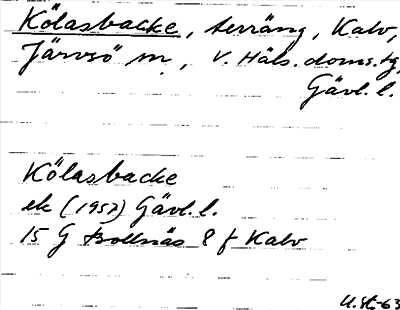 Kölasbacke, terräng, Kalv,
Järvsö sn, V. Häls. doms.tg,
Gävl. l.
Kölasbacke
ek (1957) Gävl. l.
15 G Bollnäs 8 f Kalv
U. St. -63